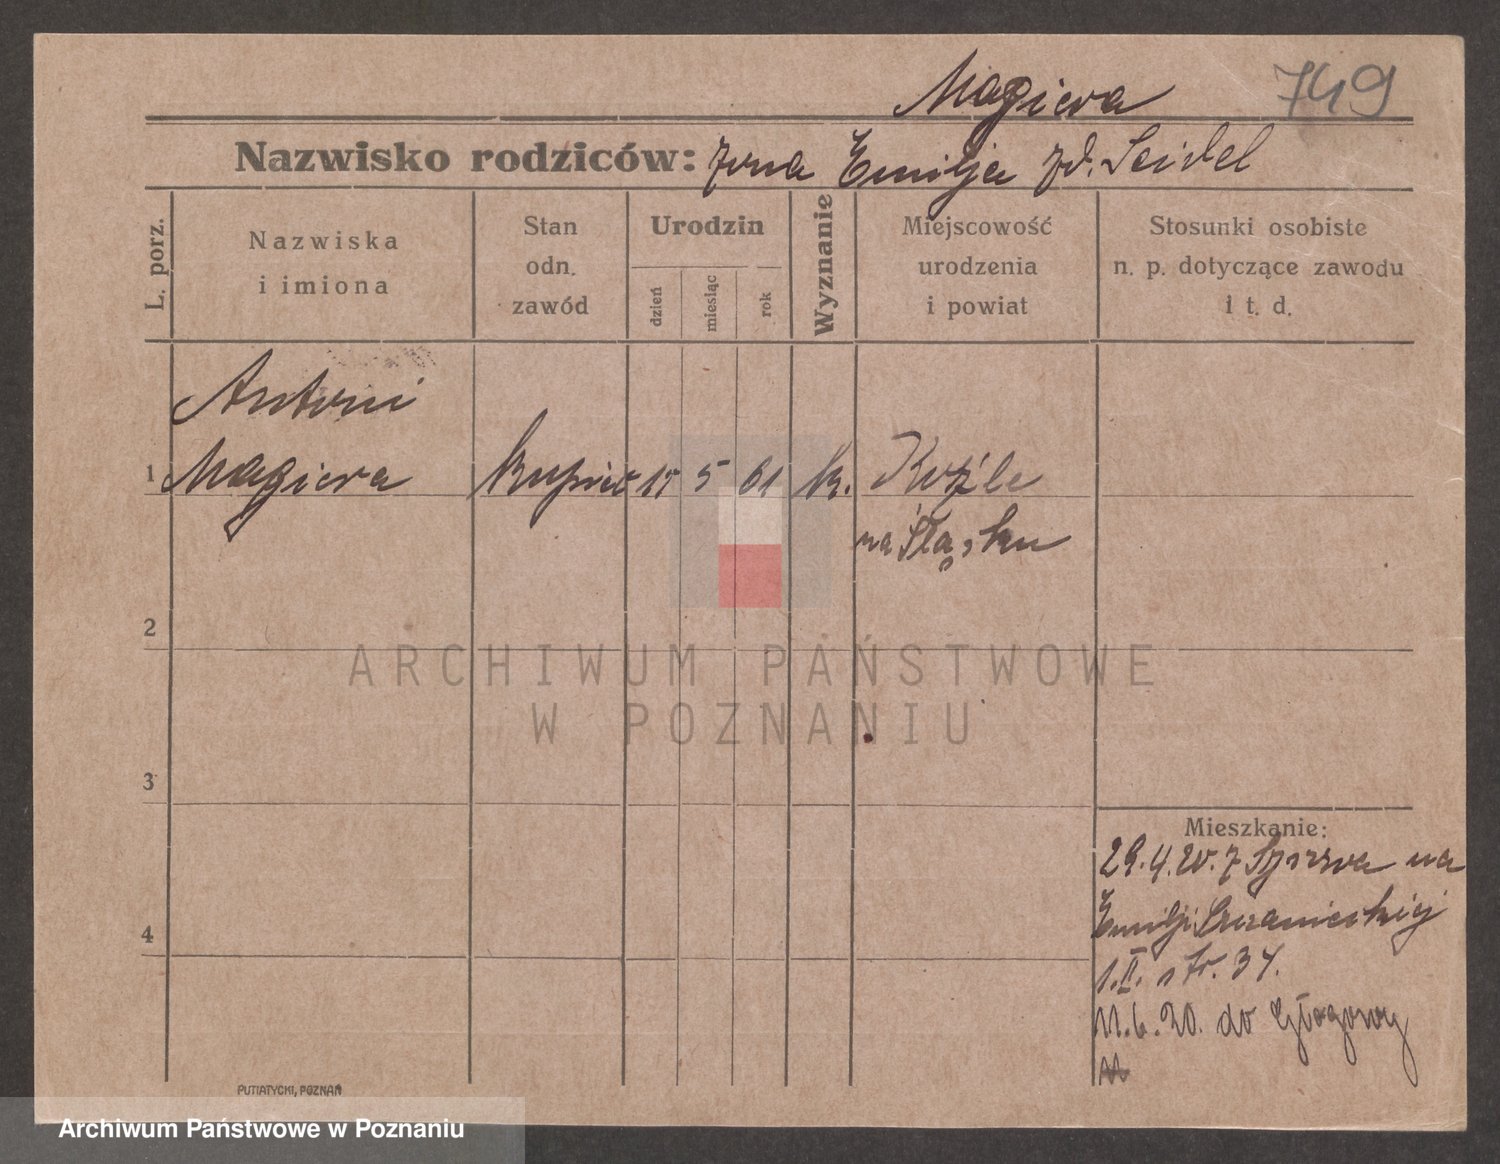 Magiera
749
Nazwisko rodziców: żona Emilja zd. Seidel
L. porz.
Nazwiska
i imiona
Stan
odn.
zawód
Urodzin
dzień
miesiąc
rok
Wyznanie
Miejscowość
urodzenia
i powiat
Stosunki osobiste
n. p. dotyczące zawodu
i t. d.
Antoni
1 Magiera kupiec 15 5 61 k. Koźle
na Śląsku
2
ARCHIWUM PAŃSTWOWE
W POZNANIU
3
Mieszkanie:
29.4.20. z na
4 Emilji Sczanieckiej
1.II. str. 34.
11.6.20. do Głogowy
PUTIATYCKI, POZNAŃ
Archiwum Państwowe w Poznaniu